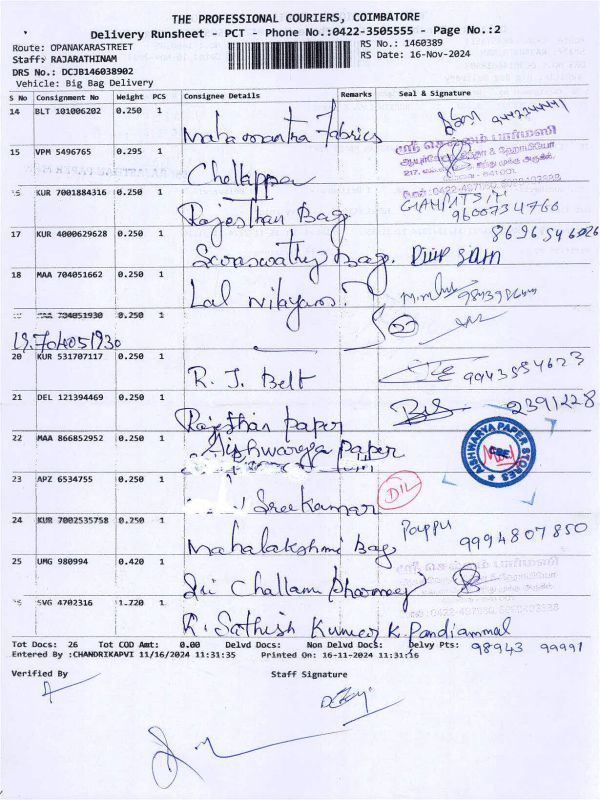 THE PROFESSIONAL COURIERS, COIMBATORE
Delivery Runsheet - PCT - Phone No.:0422-3505555 - Page No.:2
Route: OPANAKARASTREET
RS No.: 1460389
Staff: RAJARATHINAM
RS Date: 16-Nov-2024
DRS No.: DCJB146038902
Vehicle: Big Bag Delivery
S No Consignment No Weight PCS Consignee Details Remarks Seal & Signature
14 BLT 101006202 0.250 1 Mahamantra Fabrics
15 VPM 5496765 0.295 1 Chellappa
KUR 7001884316 0.250 1 Rajesthan Bag. 9600734760
17 KUR 4000629628 0.250 1 Sraswathy Bag. Dilip 8696546026
18 MAA 704051662 0.250 1 Lal
MAA 704051930 0.250 1
19. 704051930
20 KUR 531707117 0.250 1 R. J. Belt 9043554623
21 DEL 121394469 0.250 1 Rajesthan paper 2391228
22 MAA 866852952 0.250 1 Aishwarya Paper
AISHWARYA PAPER STORES
CBE
23 APZ 6534755 0.250 1 Sreekumar DIL
24 KUR 7002535758 0.250 1 Mahalakshmi Bag Pappu 9994807850
25 UMG 980994 0.420 1 Sri Challam Pharmacy
SVG 4702316 1.720 1 K. Sathish Kumar K. Pandiammal
98943 99991
Tot Docs: 26 Tot COD Amt: 0.00 Delvd Docs: Non Delvd Docs: Delvy Pts:
Entered By :CHANDRIKAPVI 11/16/2024 11:31:35 Printed On: 16-11-2024 11:31:16
Verified By Staff Signature